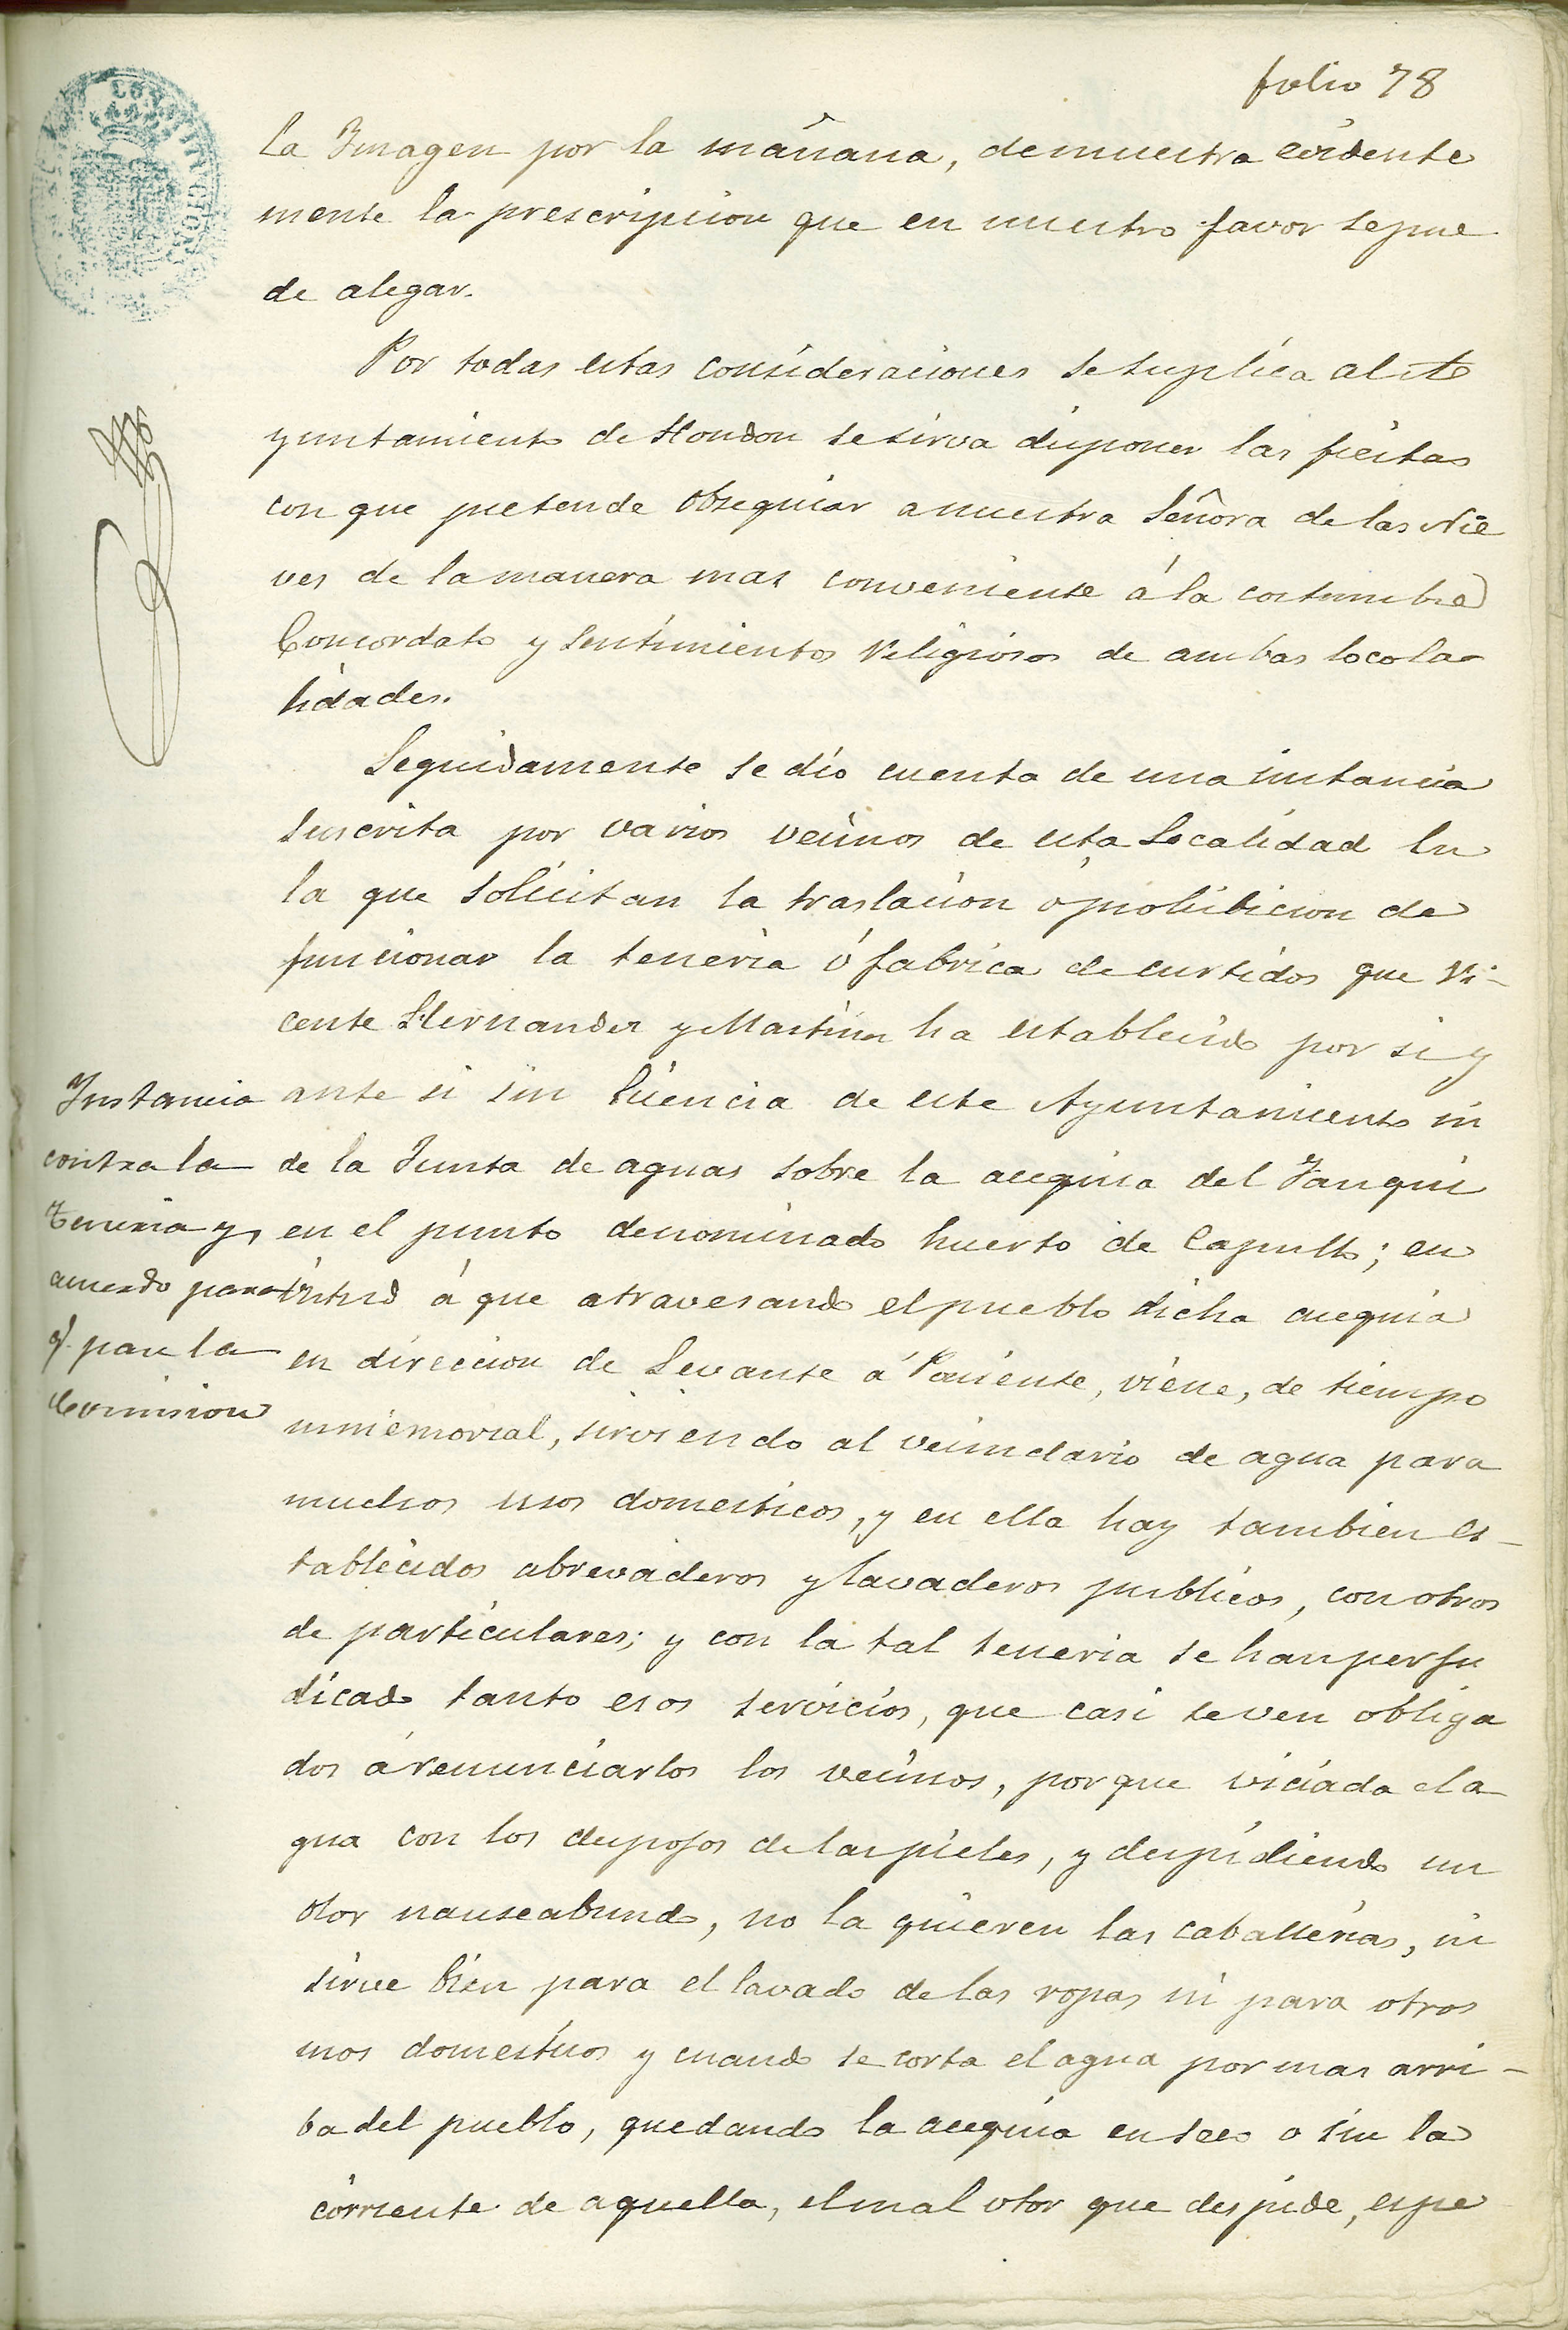 folio 78
la Imagen por la mañana, demuestra evidente
mente la prescripcion que en nuestro favor se pue
de alegar.
Por todas estas consideraciones se suplica al A
yuntamiento de Hondon se sirva disponer las fiestas
con que pretende obsequiar a nuestra Señora de las Nie
ves de la manera mas conveniente á la costumbre
Concordato y sentimientos religiosos de ambas locola
lidades.
Seguidamente se dio cuenta de una instancia
suscrita por varios vecinos de esta Localidad en
la que solicitan la traslacion ó prohibicion de
funcionar la teneria ó fabrica de curtidos que Vi-
cente Hernandez y Martinez ha establecido por si y
ante si sin licencia de este Ayuntamiento ni
de la Junta de aguas sobre la acequia del Fauqui
en el punto denominado huerto de Capullo; en
virtud á que atravesando el pueblo dicha acequia
en direccion de Levante á Poniente, viene, de tiempo
inmemorial, sirviendo al vecindario de agua para
muchos usos domesticos, y en ella hay tambien es-
tablecidos abrevaderos y lavaderos publicos, con otros
de particulares; y con la tal teneria se han perju
dicado tanto esos servicios, que casi se ven obliga
dos á renunciarlos los vecinos, porque viciada el a
gua con los despojos de las pieles, y despidiendo un
olor nauseabundo, no la quieren las caballerias, ni
sirve bien para el lavado de las ropas ni para otros
usos domesticos y cuando se corta el agua por mas arri-
ba del pueblo, quedando la acequia en seco o sin la
corriente de aquella, el mal olor que despide, espe
Instancia
contra la
Teneria y
acuerdo para
q.e pase la
Comision